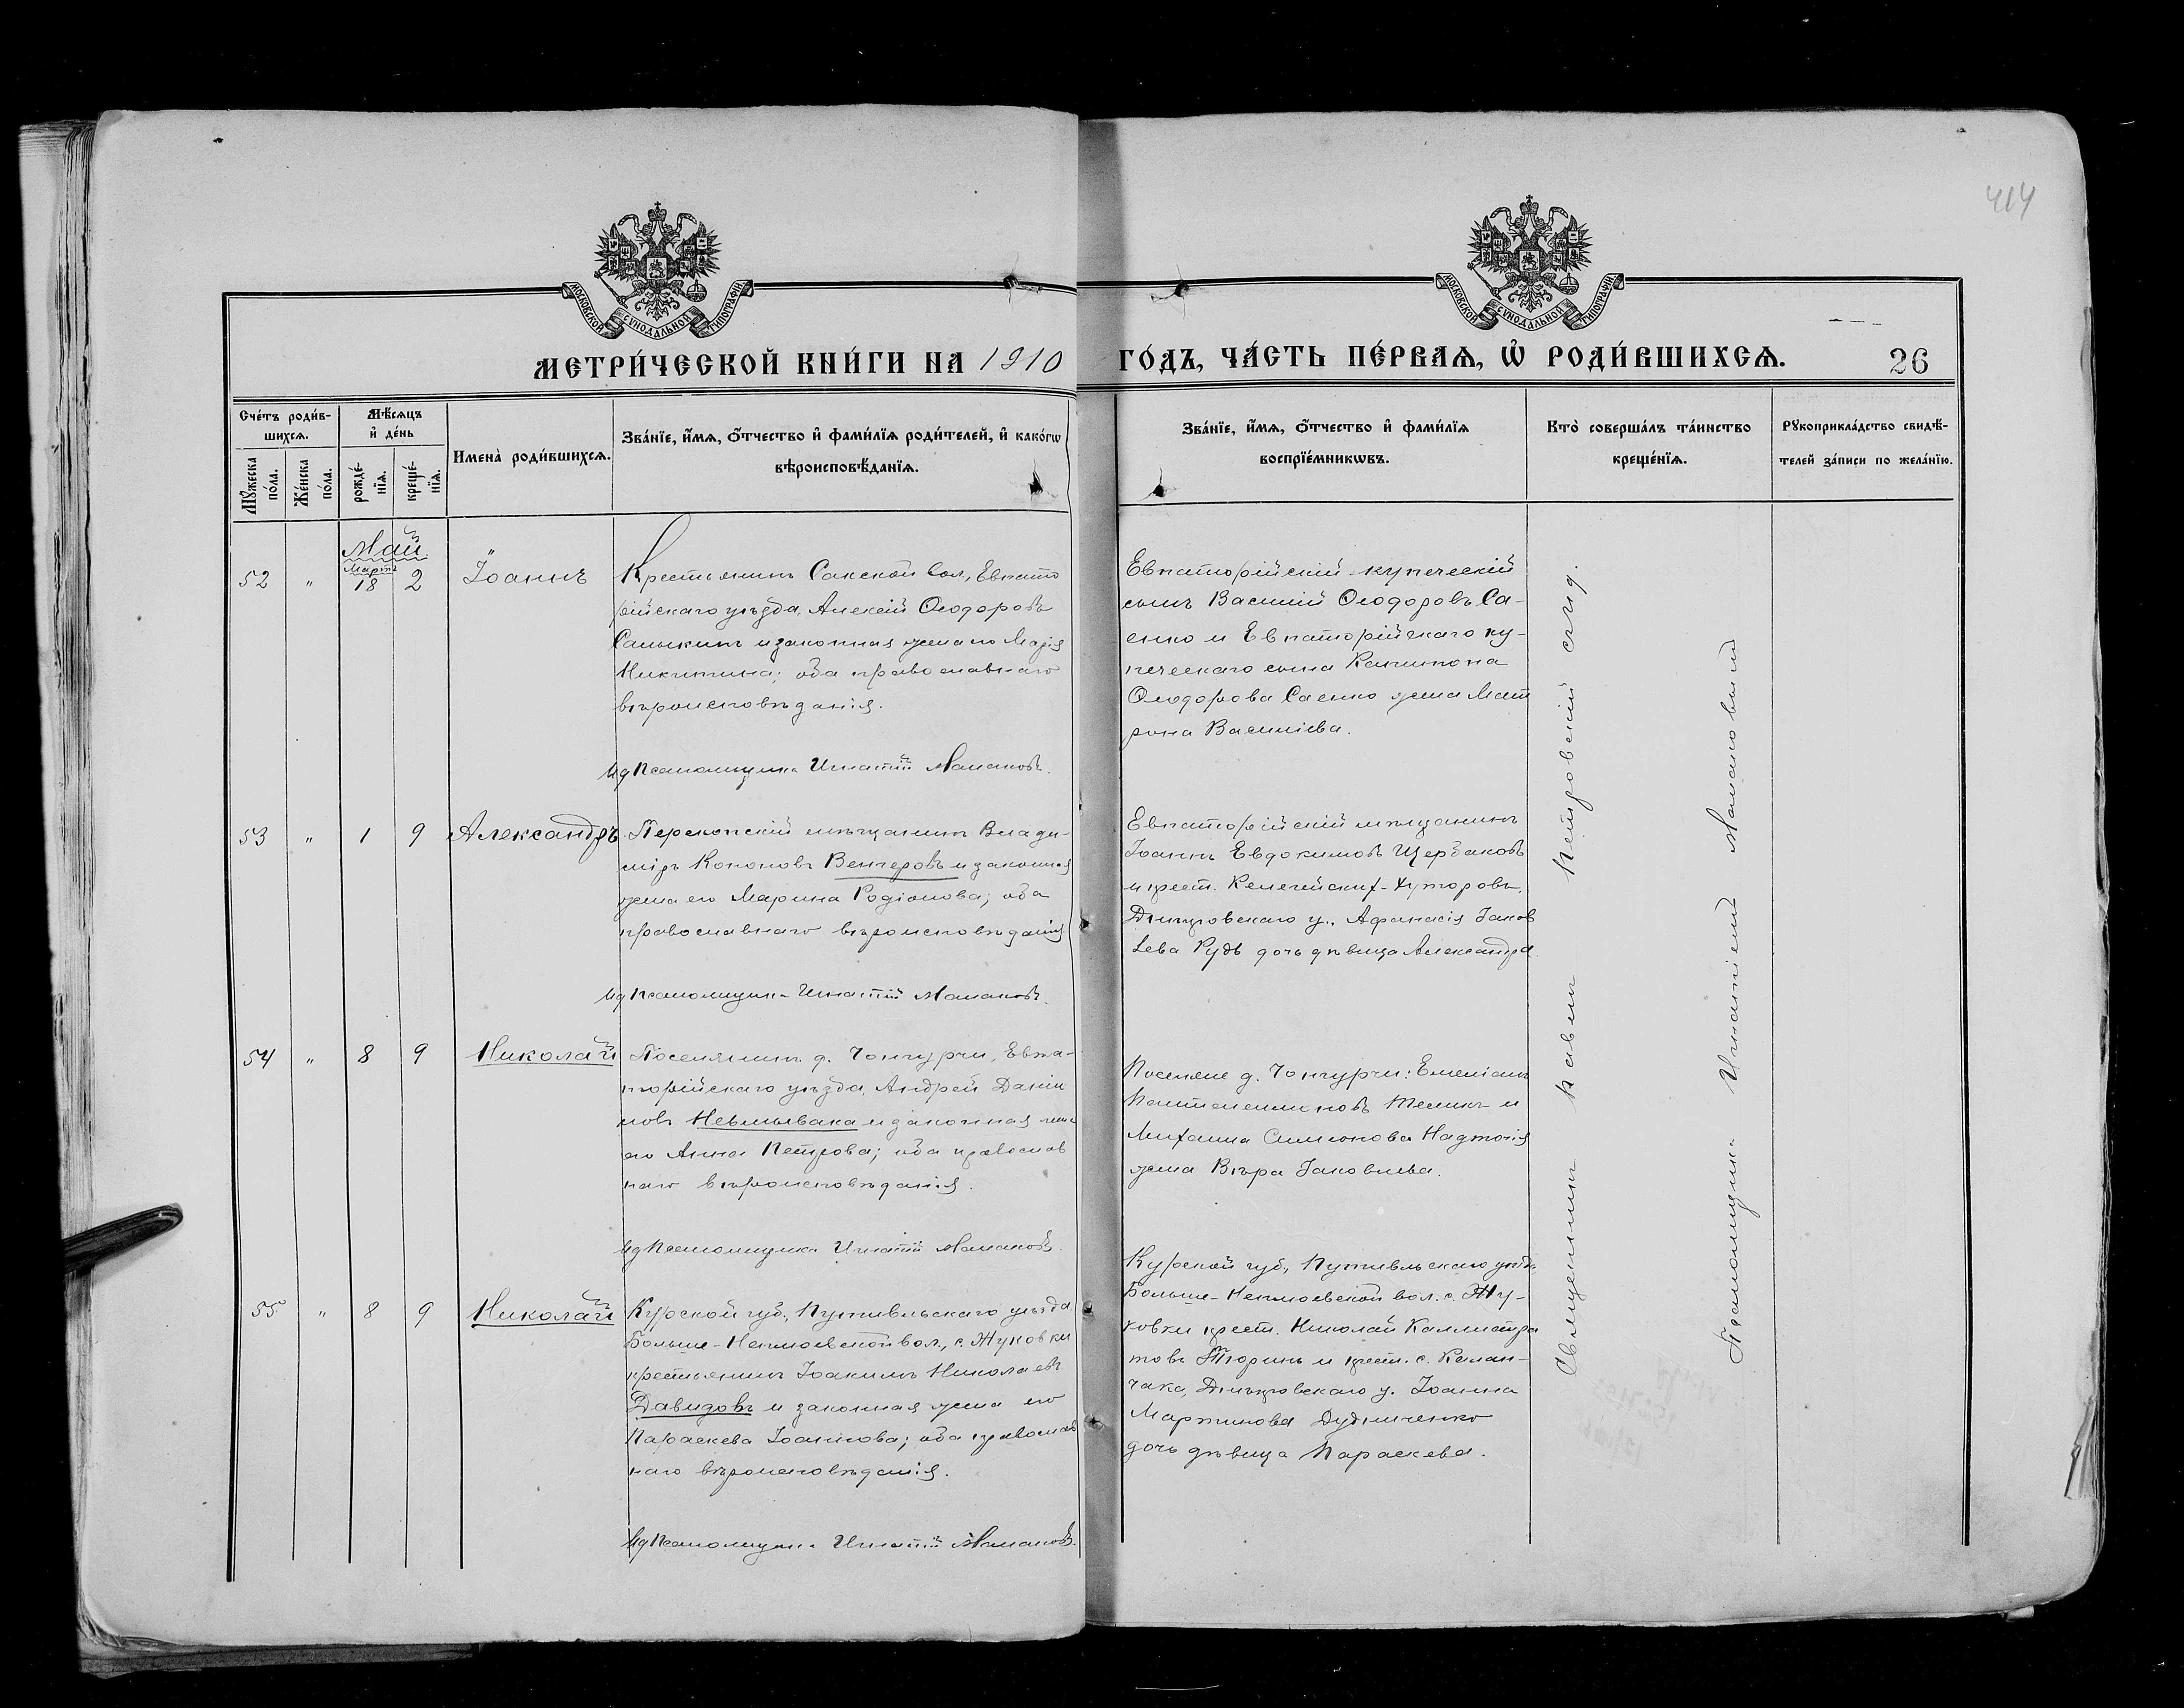 414
МОСКОВСКОЙ СѴНОДАЛЬНОЙ ТИПОГРАФІИ
МОСКОВСКОЙ СѴНОДАЛЬНОЙ ТИПОГРАФІИ
МЕТРИ́ЧЕСКОЙ КНИ́ГИ НА 1910
ГО́ДЪ, ЧА́СТЬ ПЕ́РВАѦ, Ѽ РОДИ́ВШИХСѦ.
26
Сче́тъ роди́в-
шихсѧ.
Мꙋ́жеска по́ла.
Же́нска по́ла.
Мѣ́сѧцъ
и҆ де́нь
рожде́-
нїѧ.
креще́-
нїѧ.
Имена̀ роди́вшихсѧ.
Зва́нїе, и҆́мѧ, ѻ҆́тчество и҆ фами́лїѧ роди́телей, и҆ како́гѡ
вѣроисповѣ́данїѧ.
Зва́нїе, и҆́мѧ, ѻ҆́тчество и҆ фами́лїѧ
воспрїе́мникѡвъ.
Кто̀ соверша́лъ та́инство
креще́нїѧ.
Рꙋкоприкла́дство свидѣ́-
телей за́писи по жела́нїю.
Май
Мартъ
52 " 18 2 Іоаннъ
Крестьянинъ Сакской вол., Евпато
рійскаго уѣзда, Алексій Ѳеодоровъ
и законная жена его Марія
Никитина; оба православнаго
вѣроисповѣданія.
Ид Псаломщика Игнатій Малаховъ.
Евпаторійскій купеческій
сынъ Василій Ѳеодоровъ Са-
енко и Евпаторійскаго ку-
печескаго сына Капитона
Ѳеодорова Саенко жена Мат
рона Василіева.
53 " 1 9 Александръ
Перекопскій мѣщанинъ Влади-
міръ Кононовъ Венгеровъ и законная
жена его Марина Родіонова; оба
православнаго вѣроисповѣданія
Ид псаломщика Игнатій Малаховъ.
Евпаторійскій мѣщанинъ
Іоаннъ Евдокимовъ Щербаковъ
и крест. Келегейскихъ-Хуторовъ,
Днѣпровскаго у., Афанасія Іаков
лева Рудь дочь дѣвица Александра
54 " 8 9 Николай
Поселянинъ д. Чонгурчи, Евпа-
торійскаго уѣзда, Андрей Даніи
ловъ Невмывака и законная жена
его Анна Петрова; оба православ
наго вѣроисповѣданія.
Ид Псаломщика Игнатій Малаховъ.
Поселяне д. Чонгурчи: Емеліанъ
и
Михаила Симеонова
жена Вѣра Іаковлева.
55 " 8 9 Николай
Курской губ., Путивльскаго уѣзда
Больше-Неплюевской вол., с. Жуковки
крестьянинъ Іоакимъ Николаевъ
Давидовъ и законная жена его
Параскева Іоаннова; оба православ
наго вѣроисповѣданія.
Ид Псаломщика Игнатій Малаховъ.
Курской губ., Путивльскаго уѣзда
Больше-Неплюевской вол. с. Жу-
ковки крест. Николай Каллистра
товъ Тюринъ и крест. с. Калан-
чака, Днѣпровскаго у. Іоанна
Мартинова Дудниченко
дочь дѣвица Параскева.
Священникъ Павелъ Петровскій съ и. д.
Псаломщика Игнатіемъ Малаховымъ